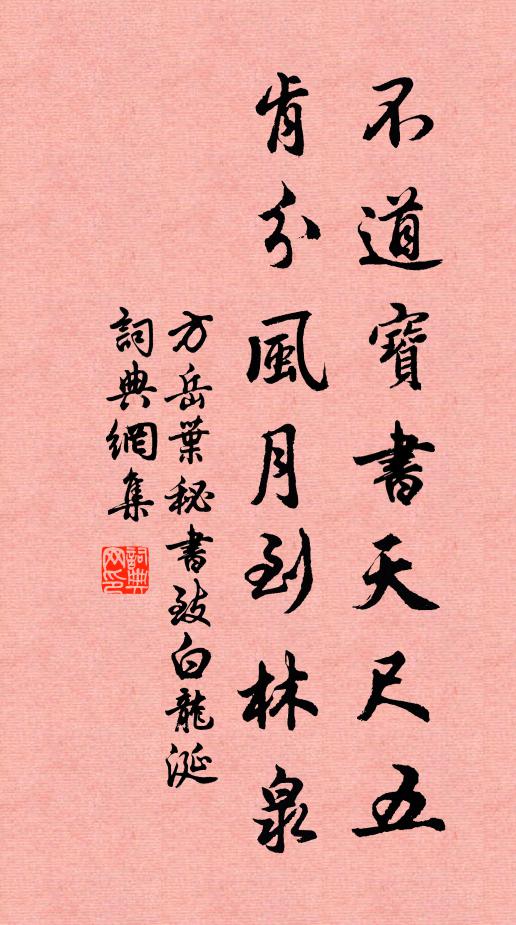 不道寶書天尺五
肯分風月到林泉
方岳葉秘書致白龍涎
詞典網集
詞典网印